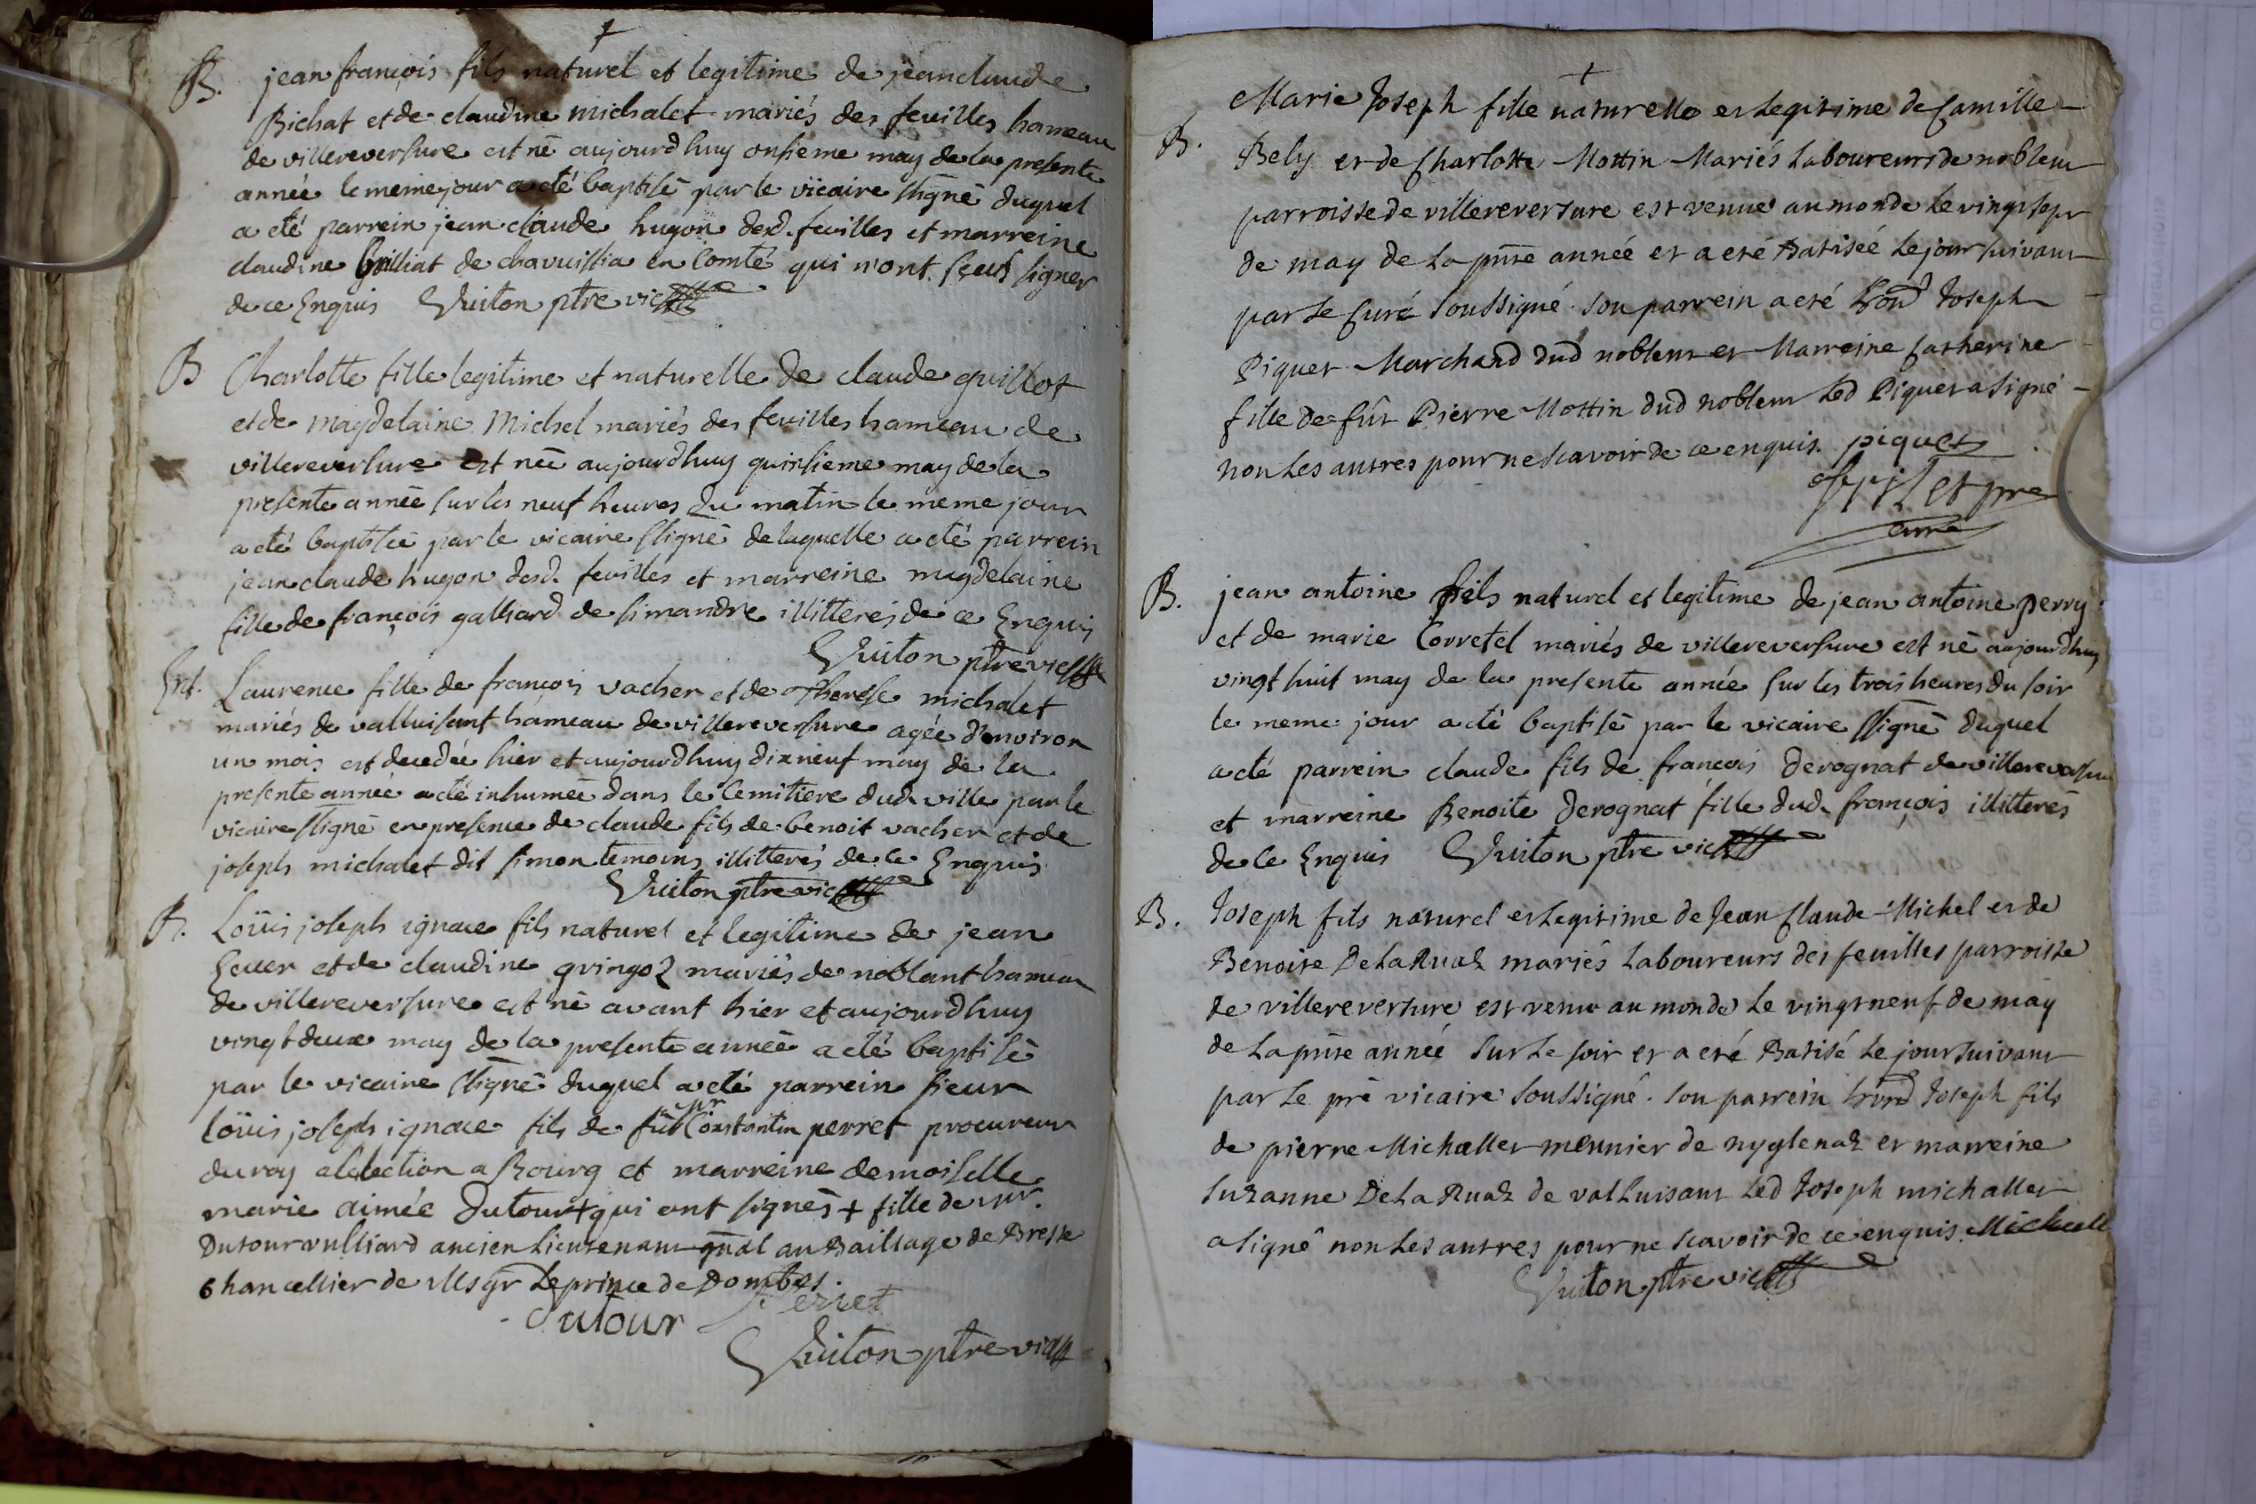 +
B. jean françois fils naturel et legitime de jean claude
Bichat et de claudine michalet mariés des feuilles hameau
de villereversure est né aujourd'huy onsieme may de la presente
année le meme jour a eté baptisé par le vicaire ssigné duquel
a eté parrein jean claude hugon desd. feuilles et marreine
claudine brilliat de chavuissia en Comté qui n'ont sçeus signer
de ce Enquis Guiton ptre vic
B Charlotte fille legitime et naturelle de claude guillot
et de magdelaine Michel mariés des feuilles hameau de
villereversure est née aujourdhuy quinsieme may de la
presente année sur les neuf heures du matin le meme jour
a eté baptisée par le vicaire ssigné de laquelle a eté parrein
jean claude hugon desd. feuilles et marreine magdelaine
fille de françois galliard de simandre illitterés de ce Enquis
Guiton ptre vic
Ent. Laurence fille de françois vacher et de Therese michalet
mariés de valluisant hameau de villereversure agée d'environ
un mois est decedée hier et aujourdhuy dixneuf may de la
presente année a eté inhumée dans le Cemitiere dud. ville par le
vicaire ssigné en presence de claude fils de benoit vacher et de
joseph michalet dit simon temoins illitterés de ce Enquis
Guiton ptre vic
B. Loüis joseph ignace fils naturel et legitime de jean
et de claudine gringoz mariés de noblant hameau
de villereversure est né avant hier et aujourdhuy
vingt deux may de la presente année a eté baptisé
par le vicaire ssigné duquel a eté parrein sieur
loüis joseph ignace fils de fût sr Constantin perret procureur
du roy a l'election a Bourg et marreine demoiselle
marie aimée Dutour + qui ont signés + fille de mr.
Dutour vulliard ancien Lieutenant gnal au Bailliage de Bresse
chancellier de Msgr Le prince de Dombes.
Dutour perret
Guiton ptre vic
+
B. Marie Joseph fille naturelle et Legitime de Camille
Bely et de Charlotte Mottin Mariés Laboureurs de noblem
parroisse de villereversure est venue au monde Le vingt sept
de may de La pnte année et a eté Batisée Le jour suivant
par Le Curé soussigné. son parrein a eté hond Joseph
Piquet Marchand dud noblem et Marreine Catherine
fille de fût Pierre Mottin dud noblem Led Piquet a signé
non Les autres pour ne scavoir de ce enquis. piquet
ptre
curé
B. jean antoine fils naturel et legitime de jean antoine perry
et de marie Corretel mariés de villereversure est né aujourdhuy
vingt huit may de la presente année sur les trois heures du soir
le meme jour a eté baptisé par le vicaire ssigné duquel
a eté parrein claude fils de françois derognat de villereversure
et marreine Benoite Derognat fille dud. françois illitterés
de ce Enquis Guiton ptre vic
B. Joseph fils naturel et Legitime de Jean Claude Michel et de
Benoite De La Ruaz mariés Laboureurs des feuilles parroisse
de villereversure est venu au monde Le vingt neuf de may
de La pnte année sur Le soir et a eté Batisé Le jour suivant
par Le pre vicaire soussigné. son parrein hond Joseph fils
de pierre Michallet meunier de nyglenaz et marreine
suzanne De La Ruaz de val Luisant Led Joseph michallet
a signé non Les autres pour ne scavoir de ce enquis. Michalle
Guiton ptre vic